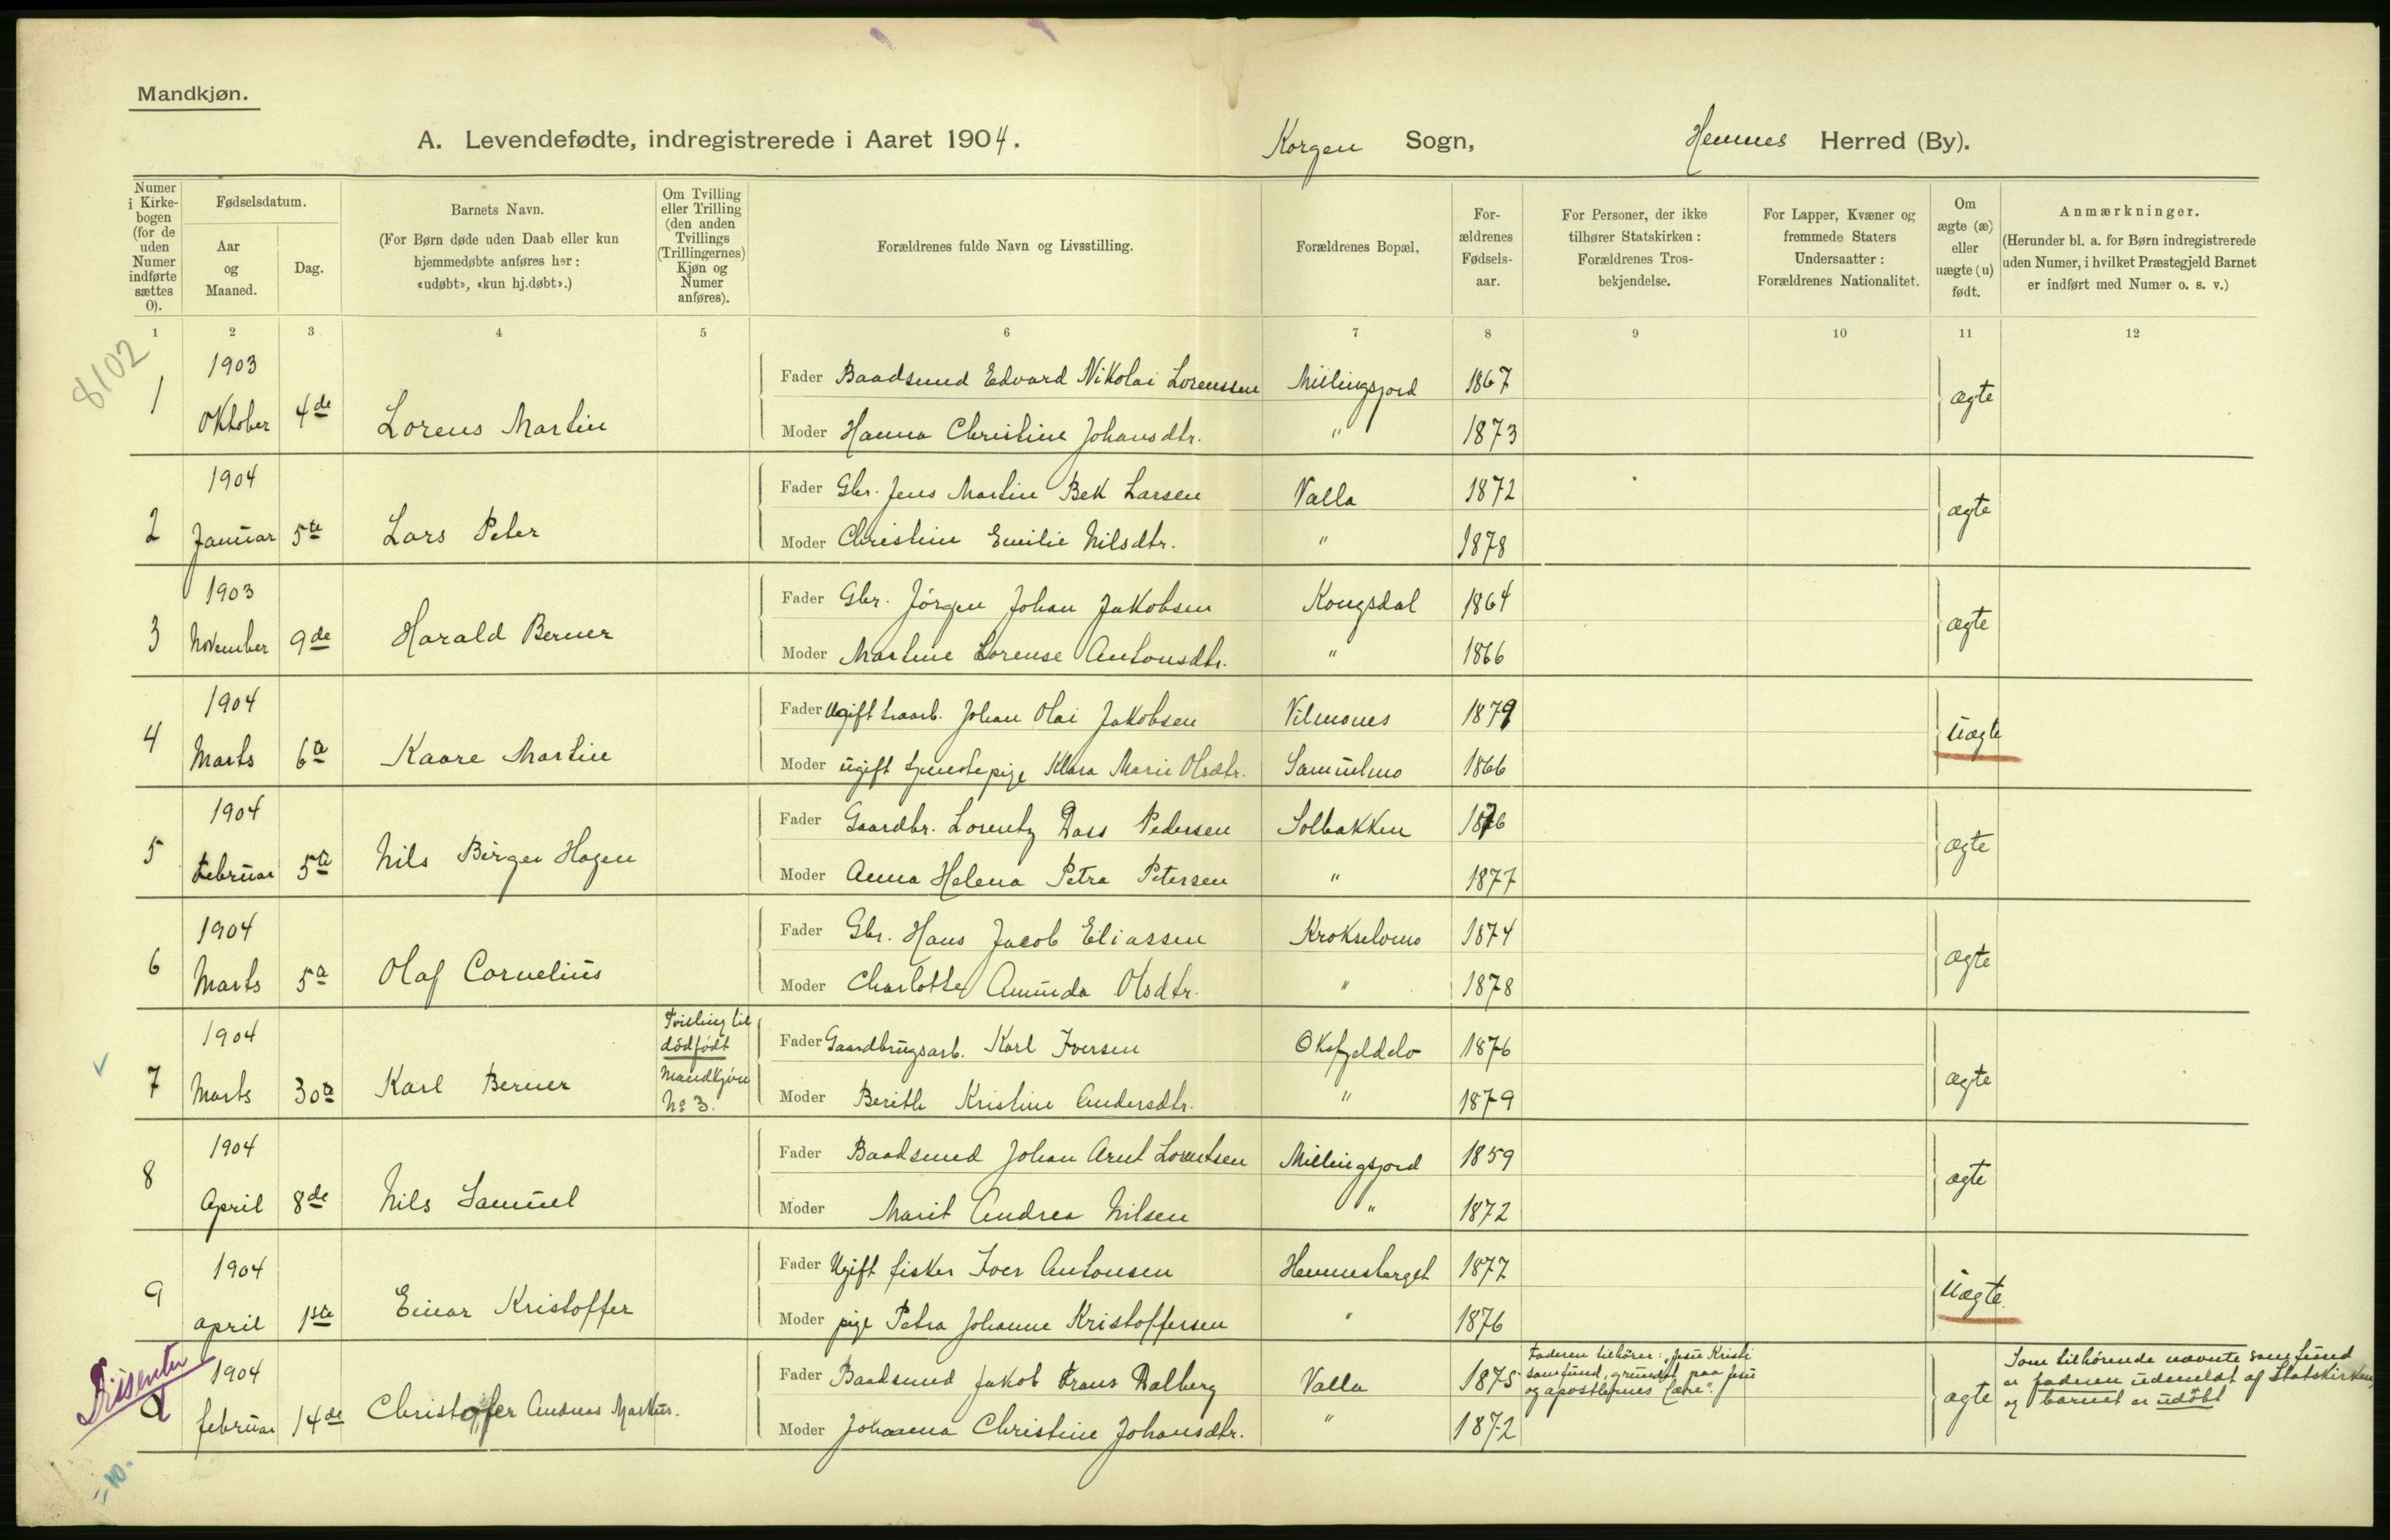 Mandkjøn.
A. Levendefødte, indregistrerede i Aaret 1904.
Korgen Sogn, Hemnes Herred (By).
Numer i Kirkebogen (for de uden Numer indførte sættes 0).
Fødselsdatum.
Aar og Maaned.
Dag.
Barnets Navn.
(For Børn døde uden Daab eller kun hjemmedøbte anføres her: «udøbt», «kun hj.døbt».)
Om Tvilling eller Trilling (den anden Tvillings (Trillingernes) Kjøn og Numer anføres).
Forældrenes fulde Navn og Livsstilling.
Forældrenes Bopæl.
Forældrenes Fødselsaar.
For Personer, der ikke tilhører Statskirken: Forældrenes Trosbekjendelse.
For Lapper, Kvæner og fremmede Staters Undersaatter: Forældrenes Nationalitet.
Om ægte (æ) eller uægte (u) født.
Anmærkninger.
(Herunder bl. a. for Børn indregistrerede uden Numer, i hvilket Præstegjeld Barnet er indført med Numer o. s. v.)
1 2 3 4 5 6 7 8 9 10 11 12
8102
1 1903 Oktober 4de Lorens Martin
Fader Baadsmand Edvard Nikolai Lorenssen Millingsjord 1867 ægte
Moder Hanna Christine Johansdtr. " 1873
2 1904 Januar 5te Lars Peter
Fader Gbr. Jens Martin Bek Larsen Valla 1872 ægte
Moder Christine Emilie Nilsdtr. " 1878
3 1903 November 9de Harald Berner
Fader Gbr. Jörgen Johan Jakobsen Kongsdal 1864 ægte
Moder Martine Lorense Antonsdtr. " 1866
4 1904 Marts 6te Kaare Martin
Fader Ugift Johan Olai Jakobsen Vilmones 1879 uægte
Moder ugift tjenestepige Klara Marie Olsdtr. Samuelmo 1866
5 1904 Februar 5te Nils Birger Hagen
Fader Gaardbr. Lorentz Dass Pedersen Solbakken 1876 ægte
Moder Anna Helena Petra Petersen " 1877
6 1904 Marts 5te Olaf Cornelius
Fader Gbr. Hans Jacob Eliassen Krokselvmo 1874 ægte
Moder Charlotte Aminda Olsdtr. " 1878
7 1904 Marts 30te Karl Berner
Tvilling til dödfödt Mandkjön No 3.
Fader Gaardbrugsarb. Karl Iversen 1876 ægte
Moder Berithe Kristine Andersdtr. " 1879
8 1904 April 8de Nils Samuel
Fader Baadsmd Johan Arnt Lorentsen Millingsjord 1859 ægte
Moder Marit Andrea Nilsen " 1872
9 1904 april 1ste Einar Kristoffer
Fader Ugift fisker Iver Antonsen Hemnesberget 1877 uægte
Moder pige Petra Johanne Kristoffersen " 1876
Dissenter
1904 februar 14de Christoffer Andreas Markus.
Fader Baadsmd Jakob Frans Dalberg Valla 1875 ægte
Moder Johanna Christine Johansdtr. " 1872
Faderen tilhører: "Jesu Kristi
samfund, grundet paa Jesu
og apostlernes lære".
Som tilhørende nævnte samfund
er faderen udmeldt af Statskirken,
og barnet er udöbt
"10.